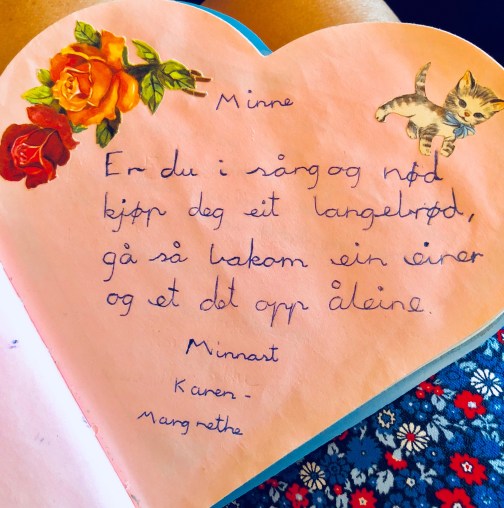 Minne
Er du i sårg og nød
kjøp deg eit langebrød,
gå så bakom ein einer
og et det opp åleine.
Minnast
Karen-
Margrethe